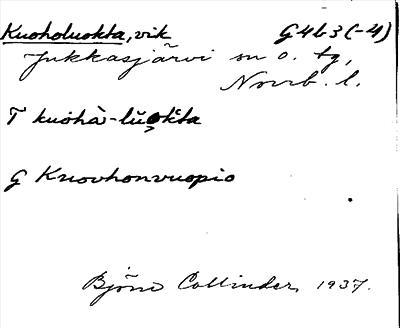 Kuoholuokta, vik G4b3(-4)
Jukkasjärvi sn o. tg,
Norrb. l.
T kuohà-lŭo̧kta
G Kuovhonvuopio
Björn Collinder 1937.